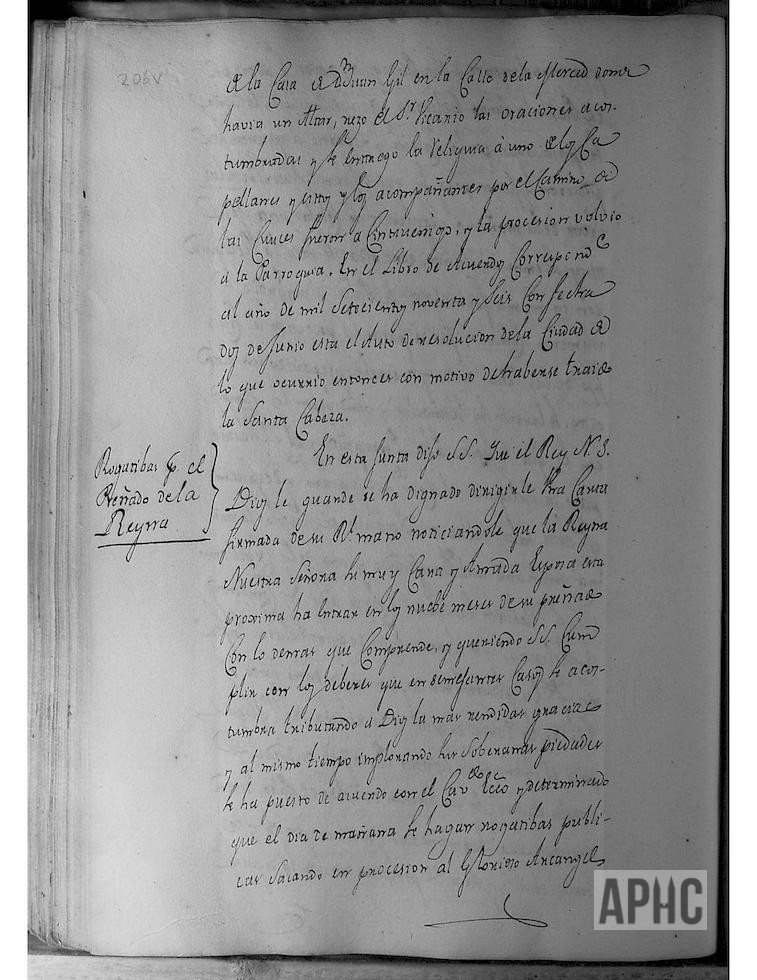 206v
de la Casa de Dn Juan Gil en la Calle de la Merced donde
havia un Altar, rezo el Sr. Vicario las oraciones acos-
tumbradas y se entrego la Reliquia à uno de los Ca
pellanes y estos y los acompañantes por el Camino de
las Cruces fueron a Cintruenigo, y la procesion volvio
a la Parroquia. En el Libro de Acuerdos Correspondte
al año de mil Setecientos noventa y seis Con fecha
dos de Junio esta el Auto de resolucion de la Ciudad de
lo que ocurrio entonces con motivo de haberse traido
la Santa Cabeza.
Rogatibas p. el
Preñado de la
Reyna
En esta Junta dijo S.S. Que el Rey N. S.
Dios le guarde se ha dignado dirigirle Una Carta
firmada de su Rl. mano noticiandole que la Reyna
Nuestra Señora su muy Cara y Amada Esposa esta
proxima ha entrar en los nuebe meses de su preñado
Con lo demas que Comprende, y queriendo S.S. Cum
plir con los deberes que en semejantes Casos se acos-
tumbra tributando à Dios la mas rendidas gracias
y al mismo tiempo implorando sus Soberanas piedades
se ha puesto de acuerdo con el Cavdo Ecco y determinado
que el dia de mañana se hagan rogatibas publi-
cas Sacando en procesion al Glorioso Arcangel
APHC